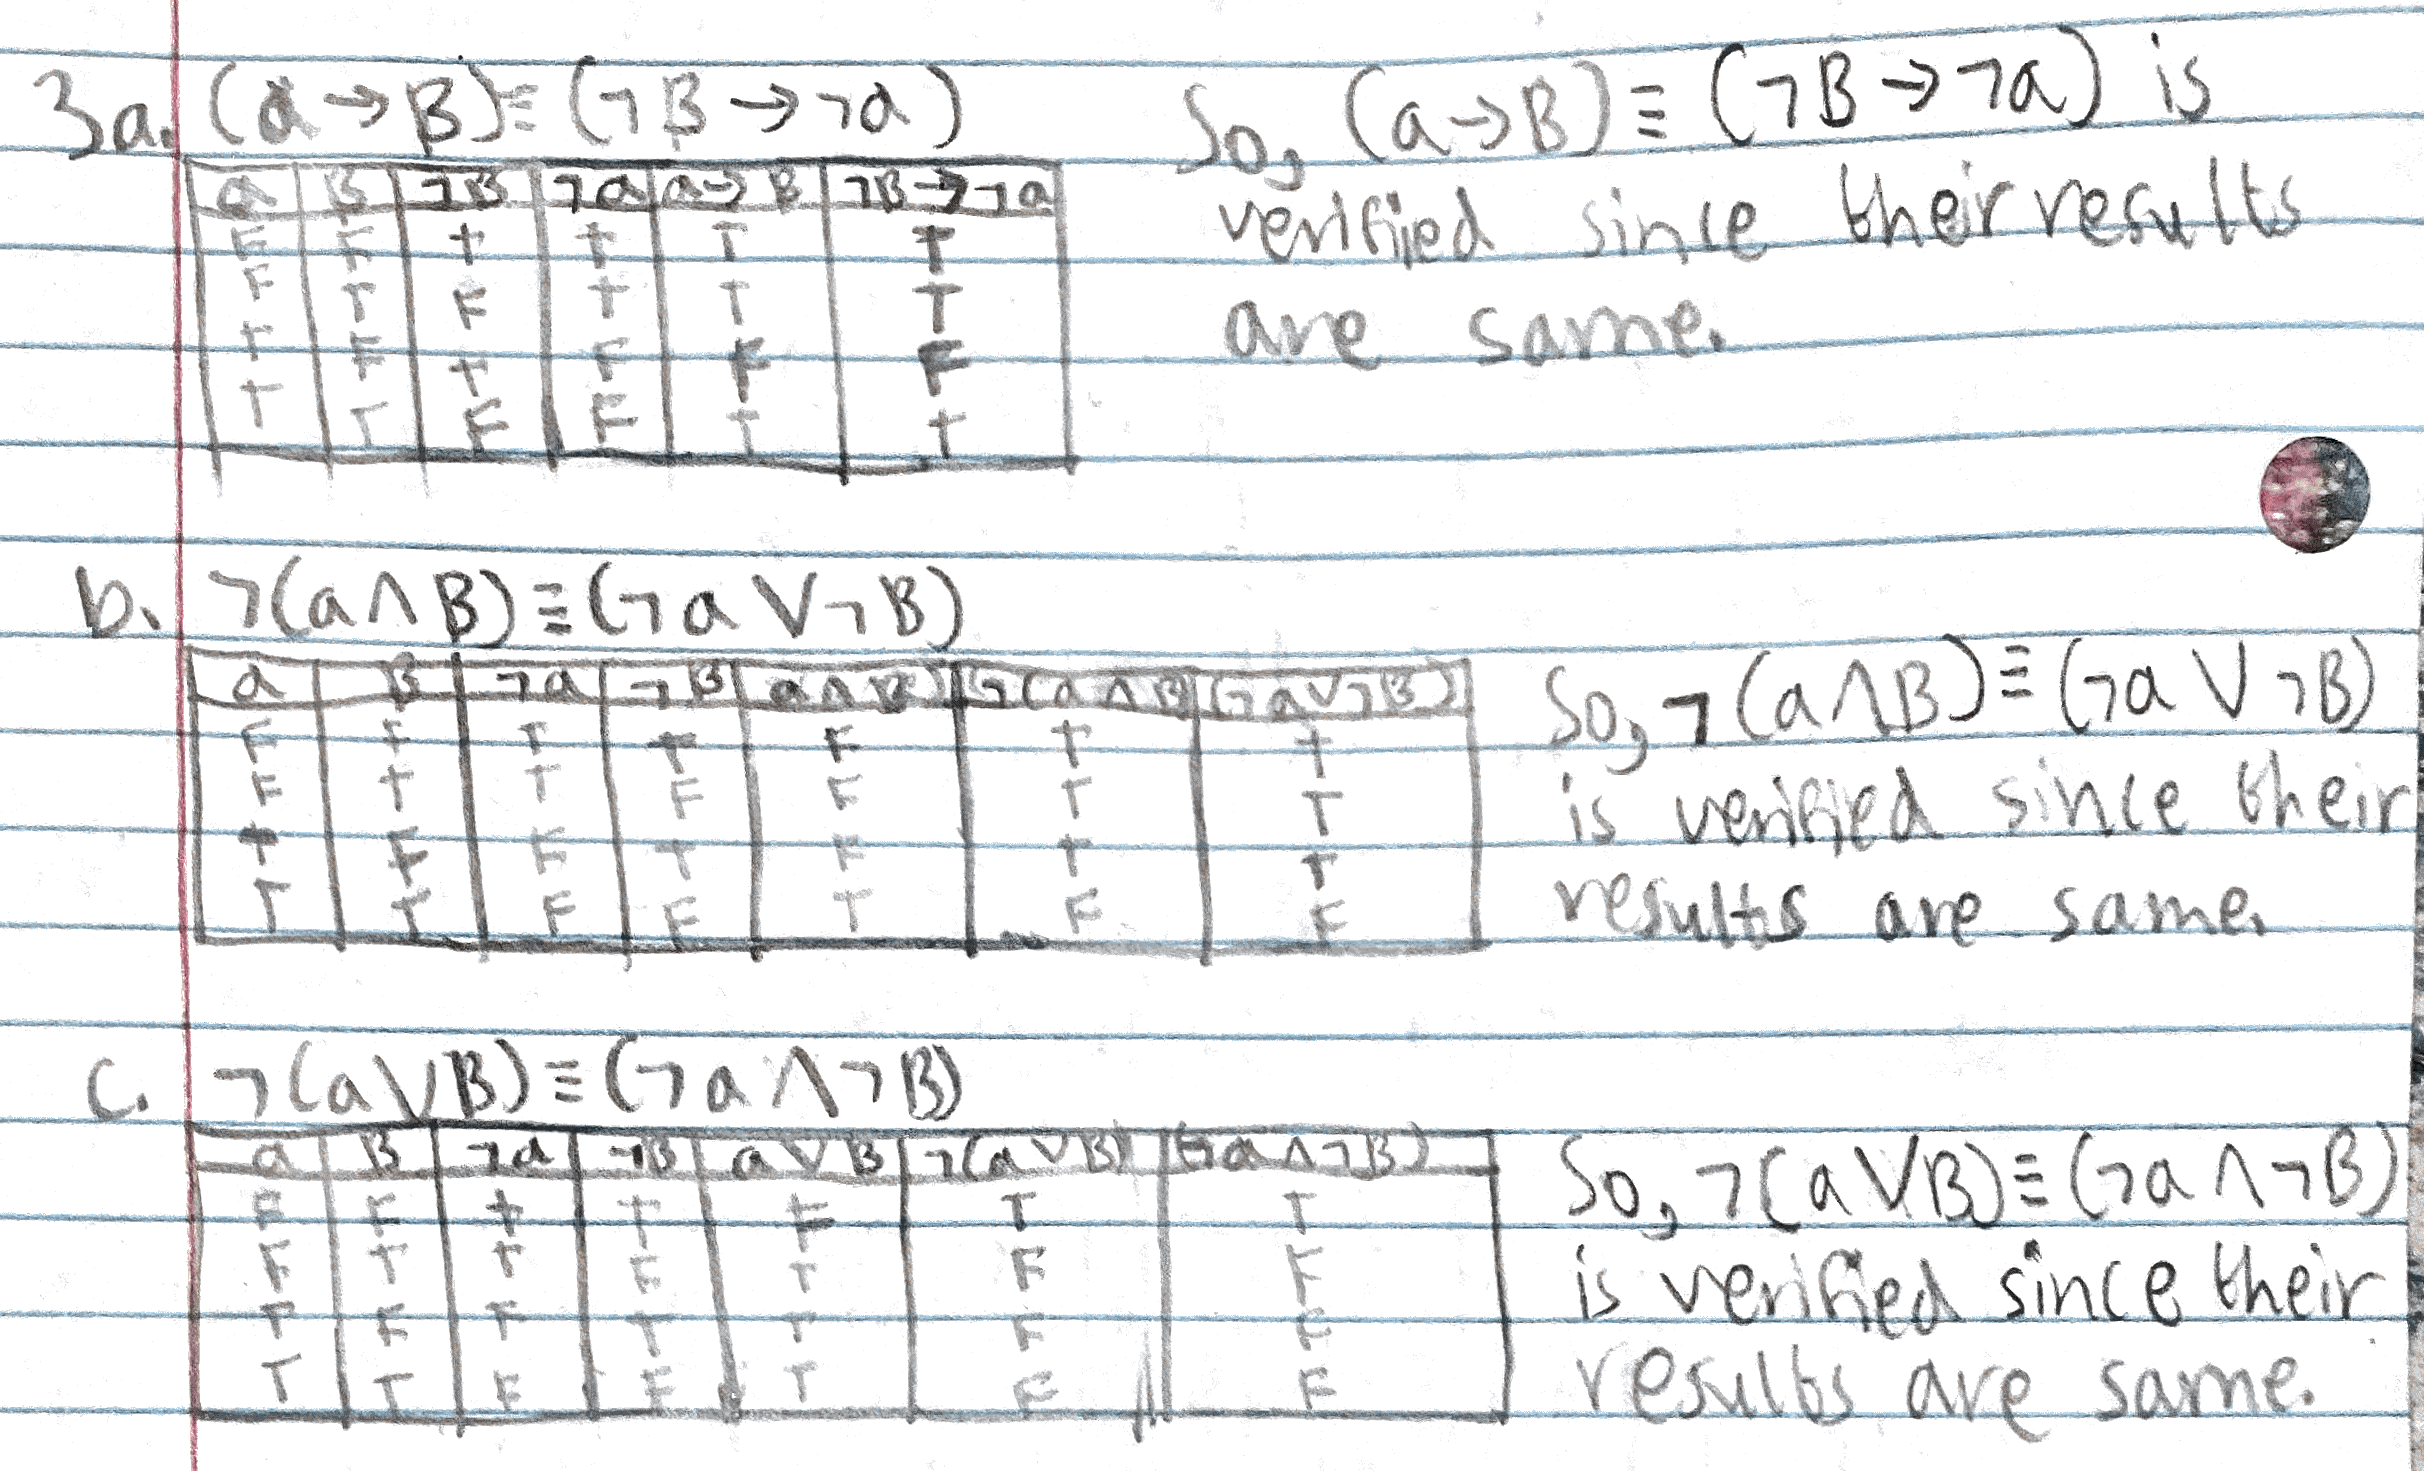 3a. (a → B) ≡ (¬B → ¬a)
a B ¬B ¬a a→B ¬B→¬a
F F T T T T
F T F T T T
T F T F F F
T T F F T T
So, (a→B) ≡ (¬B → ¬a) is
verified since their results
are same.
b. ¬(a∧B) ≡ (¬a ∨ ¬B)
a B ¬a ¬B a∧B ¬(a∧B) (¬a∨¬B)
F F T T F T T
F T T F F T T
T F F T F T T
T T F F T F F
So, ¬(a∧B) ≡ (¬a ∨ ¬B)
is verified since their
results are same.
c. ¬(a∨B) ≡ (¬a ∧ ¬B)
a B ¬a ¬B a∨B ¬(a∨B) (¬a∧¬B)
F F T T F T T
F T T F T F F
T F F T T F F
T T F F T F F
So, ¬(a∨B) ≡ (¬a ∧ ¬B)
is verified since their
results are same.